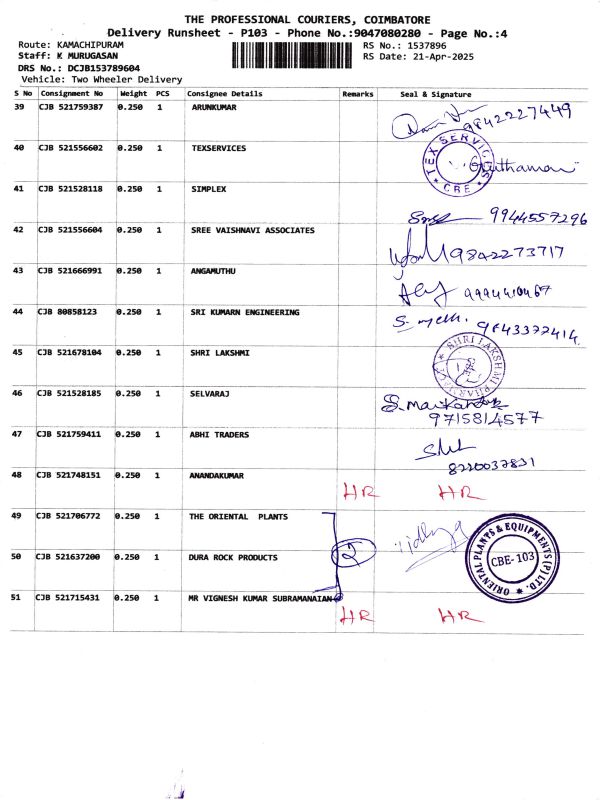 THE PROFESSIONAL COURIERS, COIMBATORE
Delivery Runsheet - P103 - Phone No.:9047080280 - Page No.:4
Route: KAMACHIPURAM
RS No.: 1537896
Staff: K MURUGASAN
RS Date: 21-Apr-2025
DRS No.: DCJB153789604
Vehicle: Two Wheeler Delivery
S No Consignment No Weight PCS Consignee Details Remarks Seal & Signature
39 CJB 521759387 0.250 1 ARUNKUMAR 9842227449
40 CJB 521556602 0.250 1 TEXSERVICES TEX SERVICES * CBE *
41 CJB 521528118 0.250 1 SIMPLEX 9944557296
42 CJB 521556604 0.250 1 SREE VAISHNAVI ASSOCIATES 9842273717
43 CJB 521666991 0.250 1 ANGAMUTHU
44 CJB 80858123 0.250 1 SRI KUMARN ENGINEERING 9843377414
45 CJB 521678104 0.250 1 SHRI LAKSHMI SHRI LAKSHMI PHARMACY
46 CJB 521528185 0.250 1 SELVARAJ
9715814577
47 CJB 521759411 0.250 1 ABHI TRADERS
8220037831
48 CJB 521748151 0.250 1 ANANDAKUMAR HR HR
49 CJB 521706772 0.250 1 THE ORIENTAL PLANTS
2 ORIENTAL PLANTS & EQUIPMENTS (P) LTD. * CBE-103
50 CJB 521637200 0.250 1 DURA ROCK PRODUCTS
51 CJB 521715431 0.250 1 MR VIGNESH KUMAR SUBRAMANAIAN HR HR